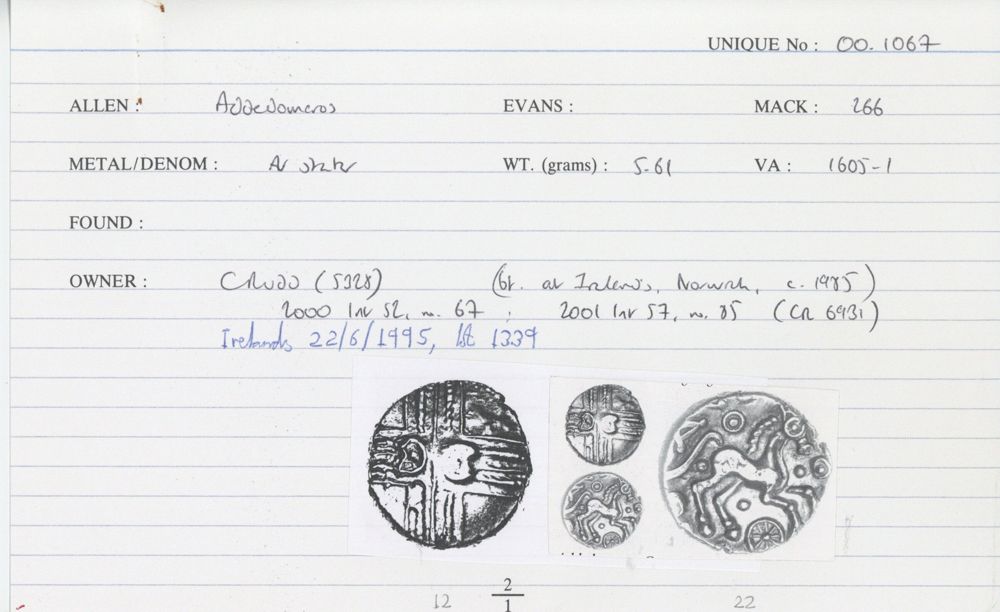 UNIQUE No : 00.1067
ALLEN : Addedomaros EVANS : MACK : 266
METAL/DENOM : AV stater WT. (grams) : 5.61 VA : 1605-1
FOUND :
OWNER : CRUDD (5328) (bt. at Ireland's, Norwich, c. 1985)
2000 Inv 52, no. 67 ; 2001 Inv 57, no. 85 (CR 6931)
Irelands 22/6/1995, lot 1339
12 2/1 22